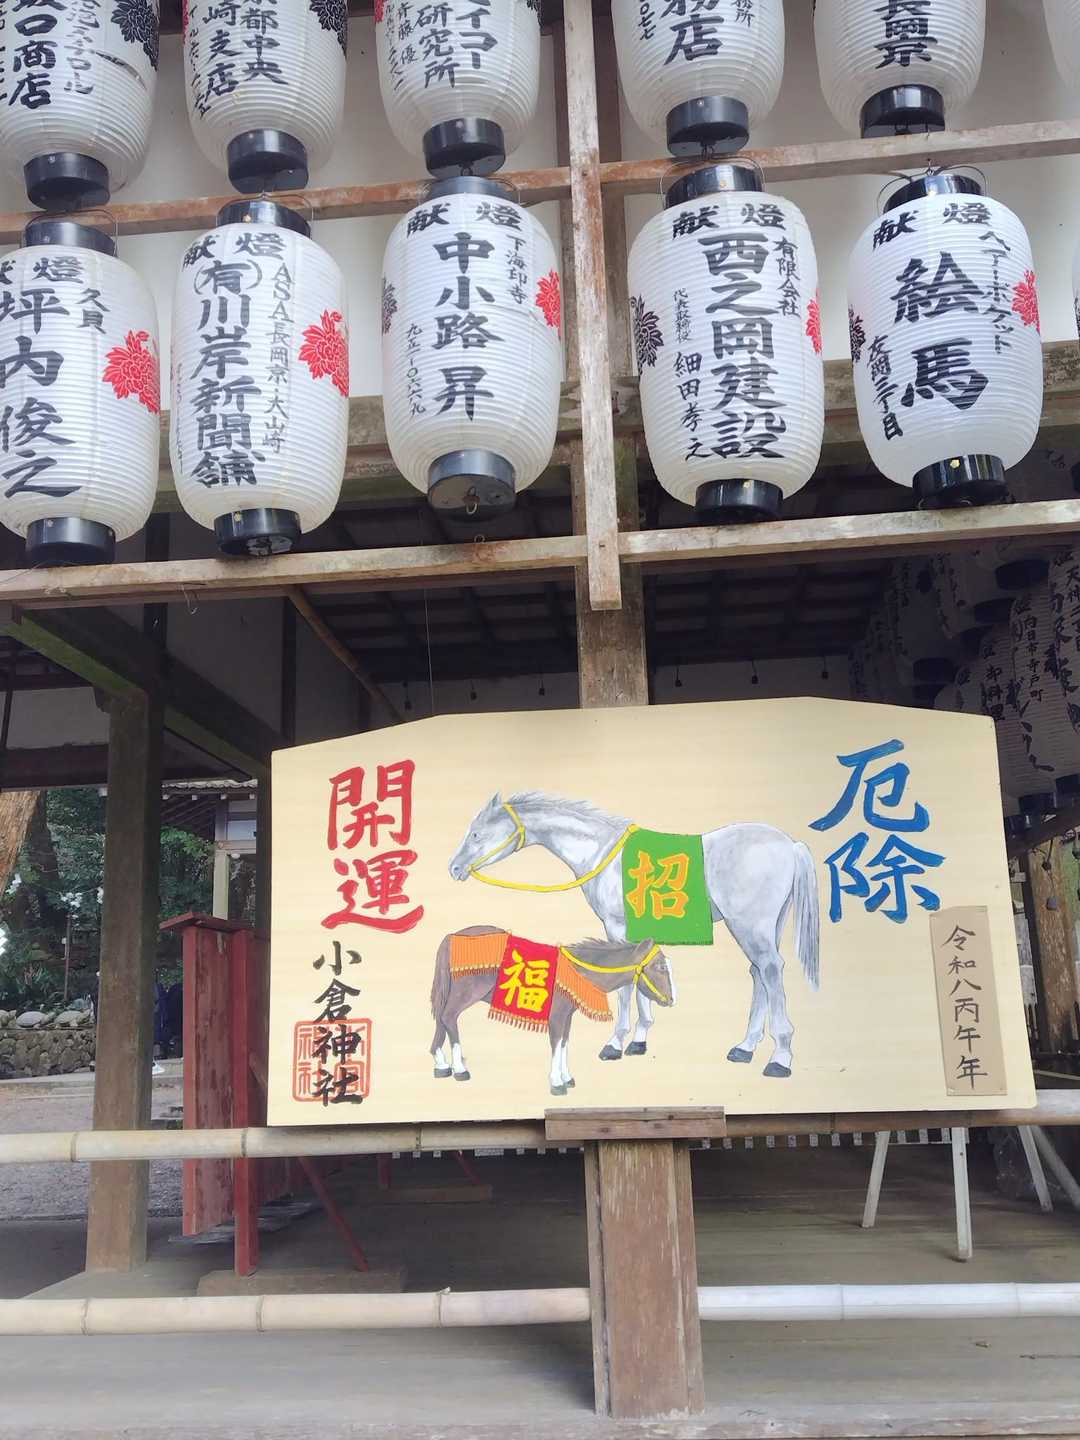 口商店
都中央
崎支店
研究所
斉藤優
務店
務所
長岡京
献燈
久貝
坪内俊之
献燈
ASA長岡京・大山崎
(有)川岸新聞舗
献燈
下海印寺
中小路昇
九五一-〇六六九
献燈
有限会社
西之岡建設
代表取締役
細田孝之
献燈
ヘアーポケット
絵馬
友岡二丁目
向日市寺戸町
御料理
厄除
開運
招
福
小倉神社
令和八丙午年